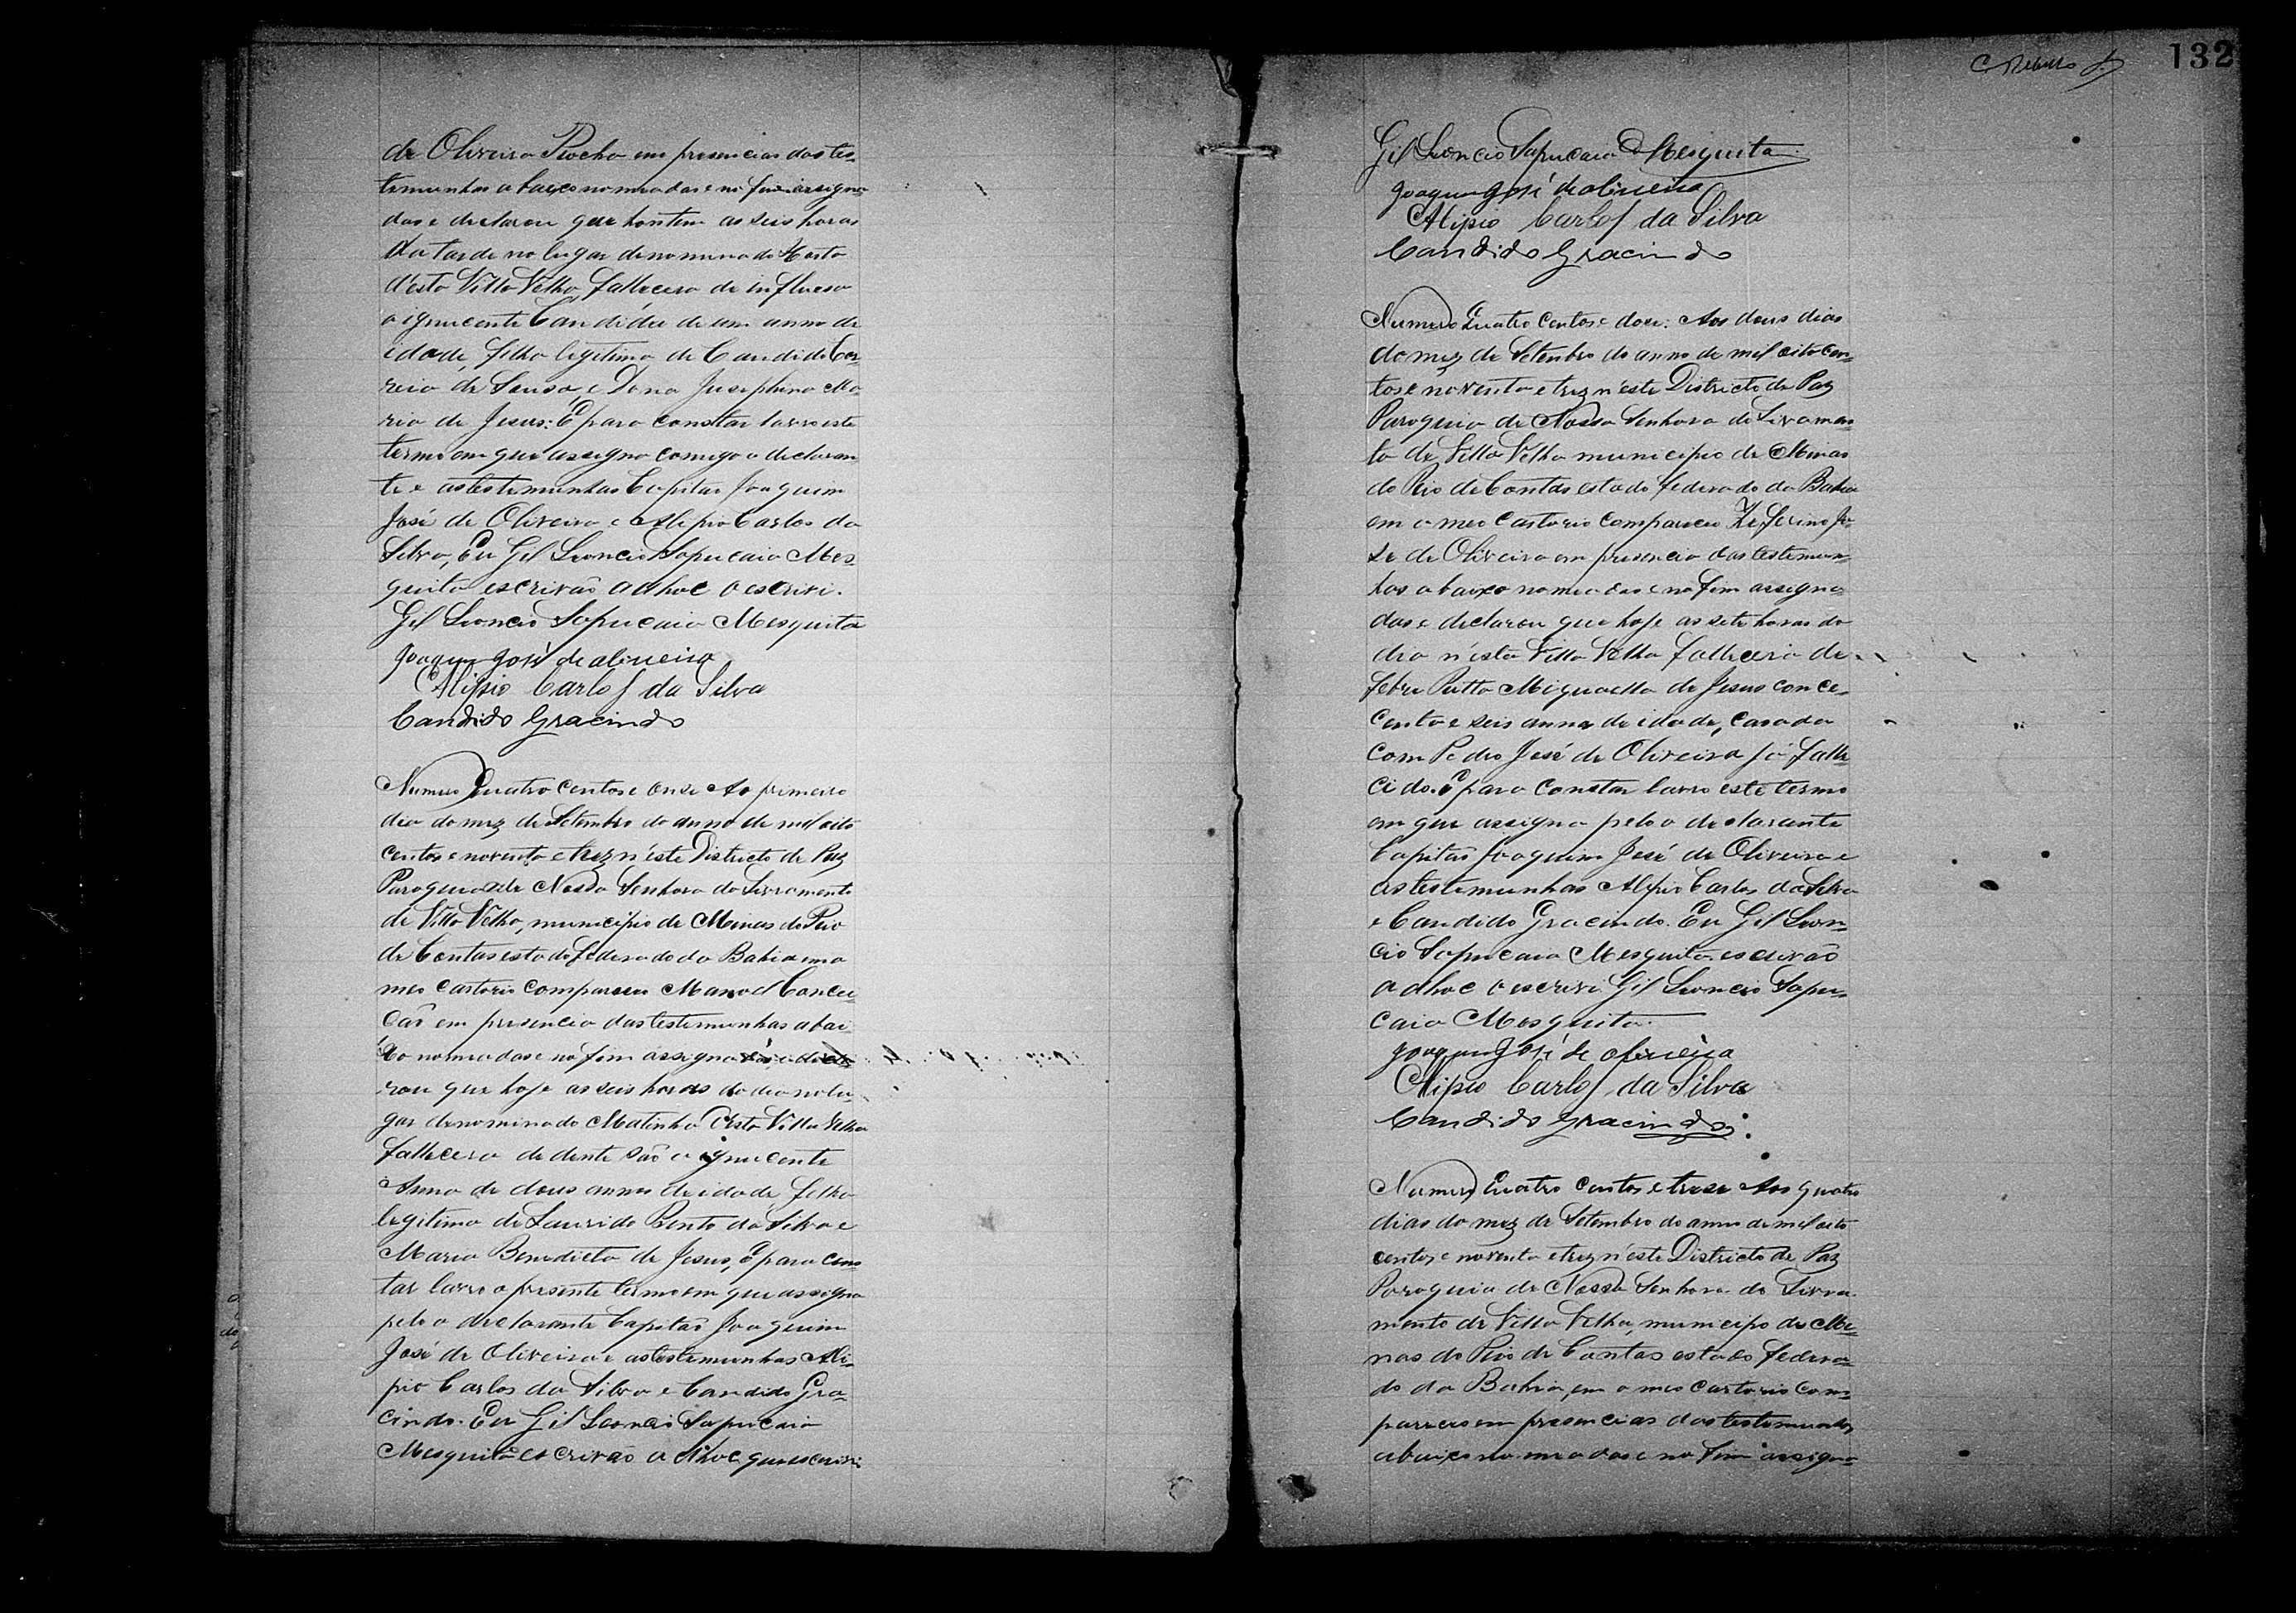 de Oliveira Rocha em presencias das tes-
temunhas abaixo nomeadas e no fim assigna
das e declarou que hontem as seis horas
da tarde no lugar denominado Horta
d'esta Villa Velha, fallecera de influesa
o ignucente Candido de um anno de
idade, filho legitimo de Candido Cor-
reia de Sousa, e Dona Jusephina Ma-
ria de Jesus: E para constar lavro este
termo em que assigna comigo o declaran
te e as testemunhas Capitão Joaquim
José de Oliveira e Alipio Carlos da
Silva, Eu Gil Leoncio Sapucaia Mes-
quita escrivão adhoc o escrivi.
Gil Leoncio Sapucaia Mesquita
Joaquim José de Oliveira
Alipio Carlos da Silva
Candido Gracindo
Numero Quatro centos e onse Ao primeiro
dia do mez de Setembro do anno de mil oito
centos e noventa e trez n'este Districto de Paz
Paroquia de Nossa Senhora do Livramento
de Villa Velha, municipio de Minas do Rio
de Contas estado federado da Bahia em o
meo cartorio compareceo Manoel Concei-
ção em presencia das testemunhas abai-
xo nomeadas e no fim assignadas, e decla
rou que hoje as seis horas do dia no lu-
gar denominado Matinha d'esta Villa Velha
fallecera de dentesão a ignucente
Anna de dous annos de idade filha
legitima de Laurido Pinto da Silva e
Maria Benedicta de Jesus, E para cons
tar lavro o presente termo em que assigna
pelo o declarante Capitão Joaquim
José de Oliveira e as testemunhas Ali-
pio Carlos da Silva e Candido Gra-
cindo. Eu Gil Leoncio Sapucaia
Mesquita escrivão adhoc que escrivi
132
Gil Leoncio Sapucaia Mesquita
Joaquim José de Oliveira
Alipio Carlos da Silva
Candido Gracindo
Numero Quatro centos e dose: Aos dous dias
do mez de Setembro do anno de mil oito cen-
tos e noventa e trez n'este Districto de Paz
Paroquia de Nossa Senhora do Livramen
to de Villa Velha municipio de Minas
do Rio de Contas estado federado da Bahia
em o meo cartorio compareceo Zeferino Jo-
se de Oliveira em presencia das testemun-
has abaixo nomeadas e no fim assigna-
das e declarou que hoje as sete horas do
dia n'esta Villa Velha falleceria de
febre Putta Miguella de Jesus con ce-
centa e seis annos de idade, casada
com Pedro José de Oliveira já falle-
cido. E para constar lavro este termo
em que assigna pelo o declarante
Capitão Joaquim José de Oliveira e
as testemunhas Alipio Carlos da Silva
e Candido Gracindo. Eu Gil Leon-
cio Sapucaia Mesquita escrivão
adhoc o escrivi Gil Leoncio Sapu-
caia Mesquita.
Joaquim José de Oliveira
Alipio Carlos da Silva
Candido Gracindo
Numero Quatro centos e trese Aos quatro
dias do mez de Setembro do anno de mil oito
centos e noventa e trez n'este Districto de Paz
Paroquia de Nossa Senhora do Livra-
mento de Villa Velha, municipo de Mi-
nas do Rio de Contas estado federa-
do da Bahia, em o meo cartorio com-
pareceo em presencias das testemunhas
abaixo nomeadas e no fim assigna-